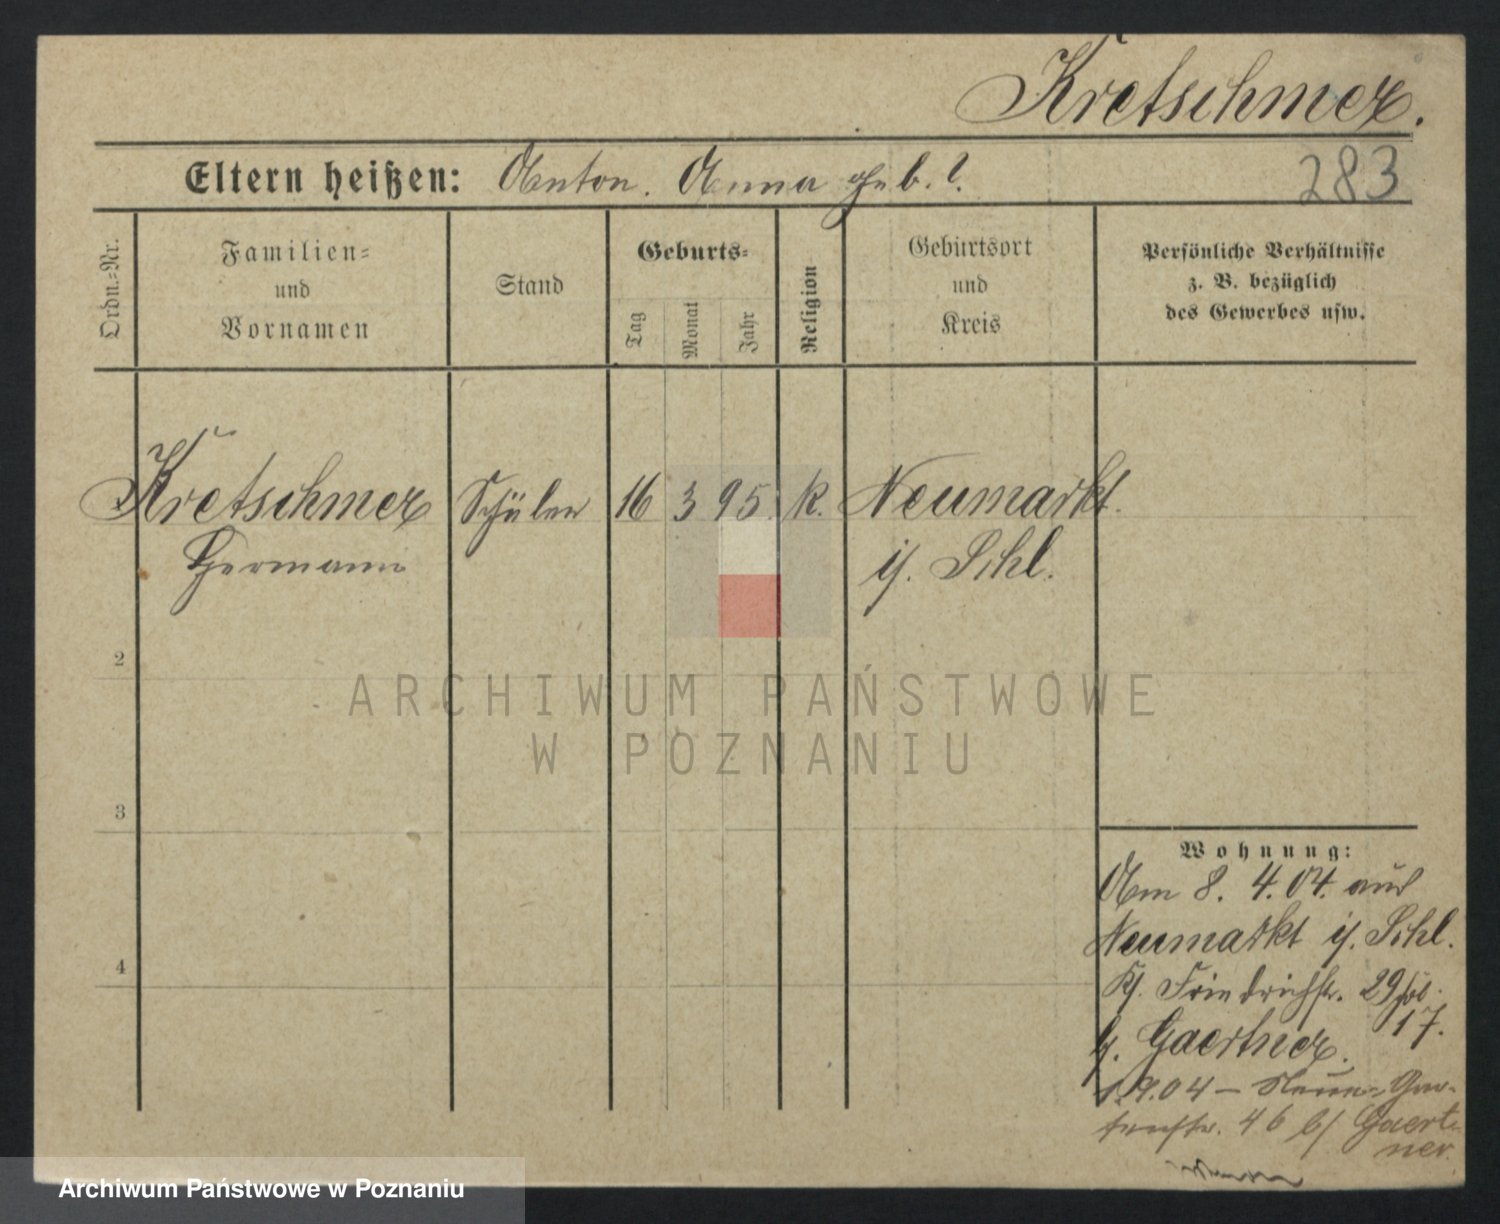 Kretschmer.
Eltern heißen: Anton. Anna geb. ?.
283
Ordn.-Nr.
Familien-
und
Vornamen
Stand
Geburts-
Tag
Monat
Jahr
Religion
Geburtsort
und
Kreis
Persönliche Verhältnisse
z. B. bezüglich
des Gewerbes usw.
Kretschmer Schüler 16 3 95. k. Neumarkt.
Hermann i/. Schl.
2
ARCHIWUM PAŃSTWOWE
W POZNANIU
3
4
Wohnung:
Am 8. 4. 04. aus
Neumarkt i/. Schl.
Friedrichstr. 29
17.
Gaertner.
1.9.04 – Neue Gar-
tenstr. 46 b/ Gaert-
ner.
Archiwum Państwowe w Poznaniu